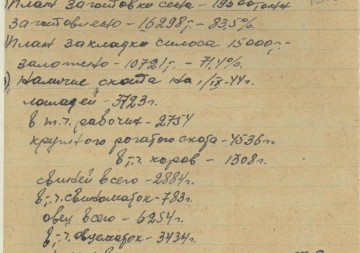 План заготовки сена - 19500 тонн
заготовлено - 16298т - 83,5%
План закладки силоса 15000т -
заложено - 10721т. - 71,4%.
Наличие скота на 1/IX-44г.
лошадей - 3723г.
в т.ч. рабочих - 2754
крупного рогатого скота - 4536г.
в т.ч. коров - 1308г.
свиней всего - 2884г.
в т.ч. свиноматок - 783г.
овец всего - 6254г.
в т.ч. овцематок - 3434г.